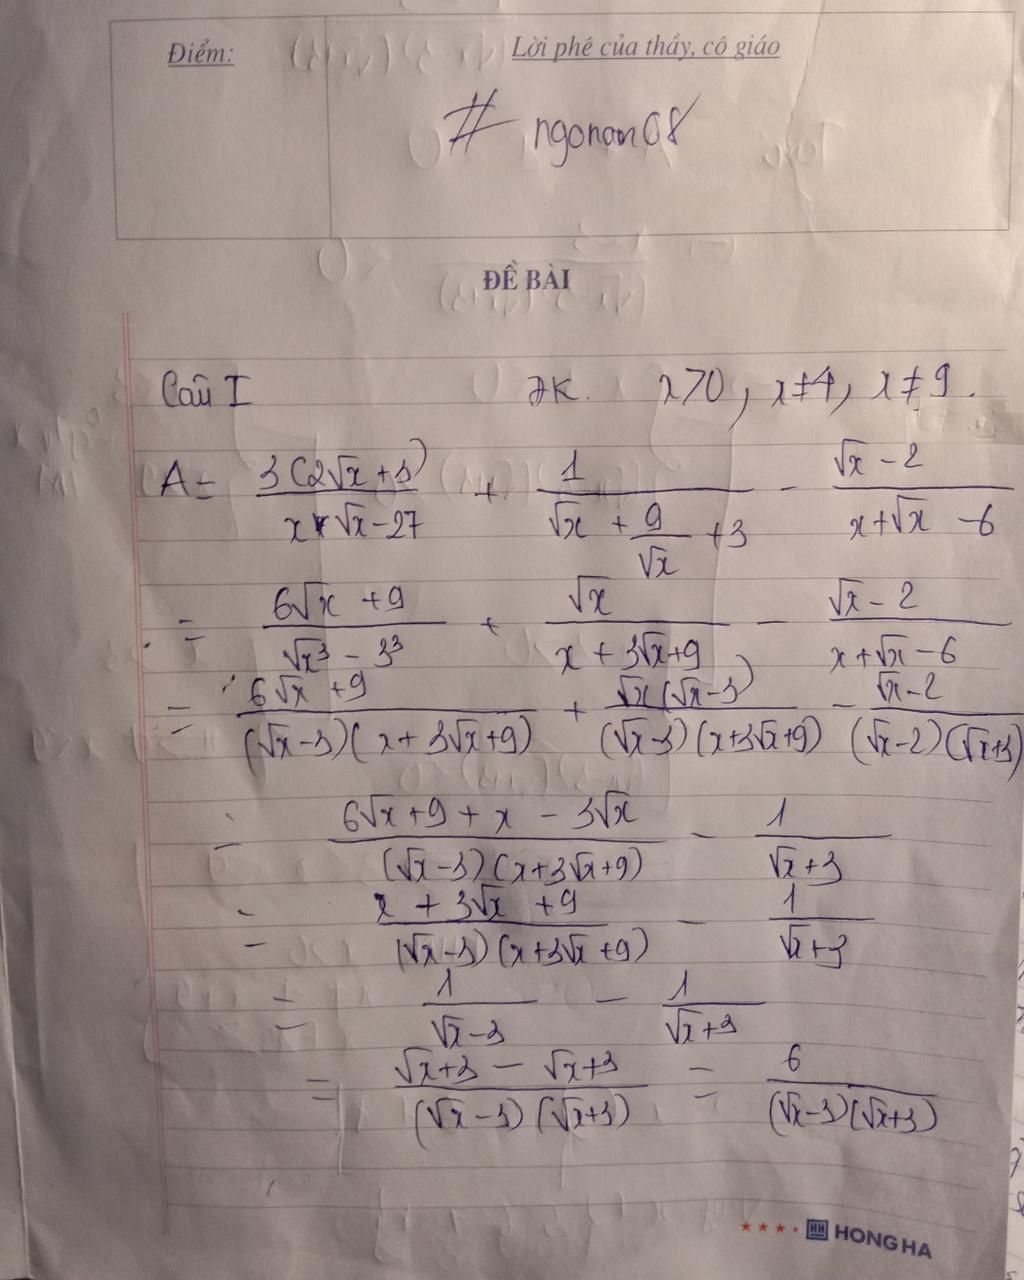 Điểm:
Lời phê của thầy, cô giáo
# ngonam08
ĐỀ BÀI
Câu I ĐK. x>0, x≠4, x≠9.
A = 3(2√x+3)/(x√x-27) + 1/(√x + 9/√x + 3) - (√x-2)/(x+√x-6)
= (6√x+9)/(√x³-3³) + √x/(x+3√x+9) - (√x-2)/(x+√x-6)
= (6√x+9)/((√x-3)(x+3√x+9)) + √x(√x-3)/((√x-3)(x+3√x+9)) - (√x-2)/((√x-2)(√x+3))
= (6√x+9+x-3√x)/((√x-3)(x+3√x+9)) - 1/(√x+3)
= (x+3√x+9)/((√x-3)(x+3√x+9)) - 1/(√x+3)
= 1/(√x-3) - 1/(√x+3)
= (√x+3-√x+3)/((√x-3)(√x+3)) = 6/((√x-3)(√x+3))
HH HONG HA